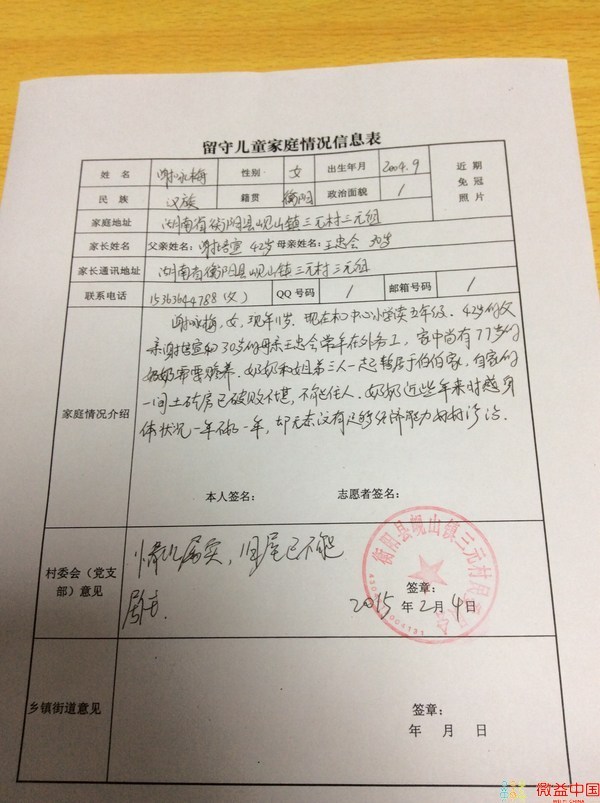 留守儿童家庭情况信息表
姓名 谢咏梅 性别 女 出生年月 2004.9 近期免冠照片
民族 汉族 籍贯 衡阳 政治面貌 /
家庭地址 湖南省衡阳县岘山镇三元村三元组
家长姓名 父亲姓名: 谢 42岁 母亲姓名: 王忠会 30岁
家长通讯地址 湖南省衡阳县岘山镇三元村三元组
联系电话 15363644788(父) QQ号码 / 邮箱号码 /
家庭情况介绍
谢咏梅,女,现年11岁.现在和中心小学读五年级.42岁的父
亲谢 和30岁的母亲王忠会常年在外务工,家中尚有77岁的
奶奶需要赡养.奶奶和姐弟三人一起暂居于伯伯家,自家的
一间土砖房已破败不堪,不能住人.奶奶近些年来时感身
体状况一年不如一年,却元本没有足够经济能力
本人签名: 志愿者签名:
村委会(党支部)意见
情况属实,旧屋已不能
居住.
签章:
2015年2月4日
衡阳县岘山镇三元村民委员会
乡镇街道意见
签章:
年 月 日
微益中国
WEIYI CHINA